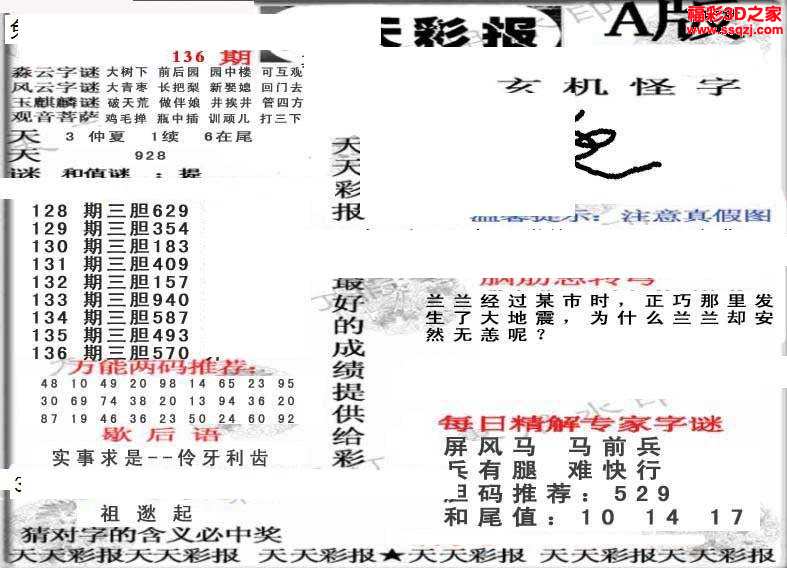 福彩3D之家
www.ssqzj.com
天彩报
A版
136 期
森云字谜 大树下 前后园 园中楼 可互观
风云字谜 大青枣 长把梨 新娶媳 回门去
玉麒麟谜 破天荒 做伴娘 井挨井 管四方
观音菩萨 鸡毛掸 瓶中插 训顽儿 打三下
天 3 仲夏 1续 6在尾
天 928
谜 和值谜 : 提
玄机怪字
温馨提示: 注意真假图
128 期三胆629
129 期三胆354
130 期三胆183
131 期三胆409
132 期三胆157
133 期三胆940
134 期三胆587
135 期三胆493
136 期三胆570
万能两码推荐:
48 10 49 20 98 14 65 23 95
30 69 74 38 20 13 94 36 20
87 19 46 36 23 50 24 60 92
歇后语
实事求是--伶牙利齿
祖逖起
猜对字的含义必中奖
天天彩报
最好的成绩提供给彩
脑筋急转弯
兰兰经过某市时，正巧那里发
生了大地震，为什么兰兰却安
然无恙呢？
每日精解专家字谜
屏风马 马前兵
兵有腿 难快行
胆码推荐:529
和尾值:10 14 17
天天彩报天天彩报 天天彩报★天天彩报 天天彩报天天彩报